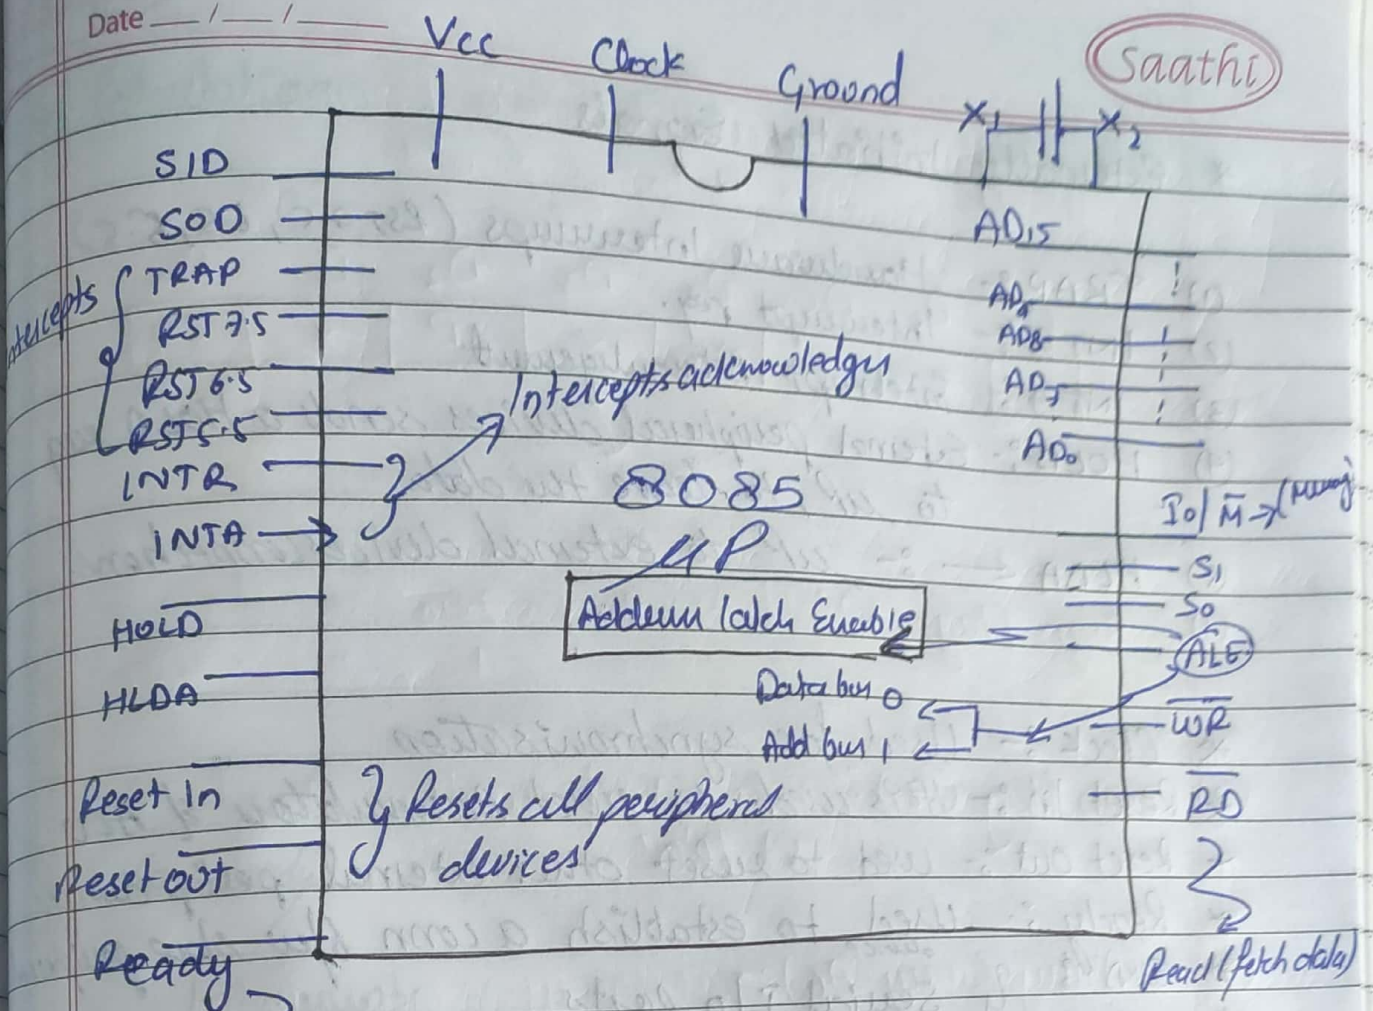 Date __/__/__
Saathi
Vcc
Clock
Ground
X1
X2
SID
SOD
TRAP
RST 7.5
RST 6.5
RST 5.5
INTR
INTA
HOLD
HLDA
Reset In
Reset out
Ready
Intercepts acknowledges
8085
μP
Address latch Enable
Data bus 0
Add bus 1
} Resets all peripheral
devices
AD15
AD8
AD7
AD0
Io/M̅ →
S1
S0
ALE
W̅R̅
R̅D̅
Read (fetch data)